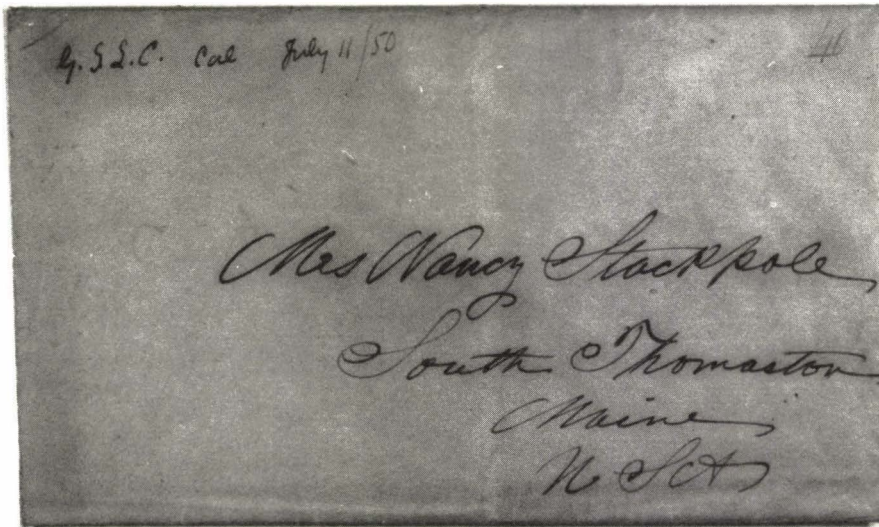 G. S L. C. Cal July 11/50
Mrs Nancy Stackpole
South Thomaston
Maine
U S A